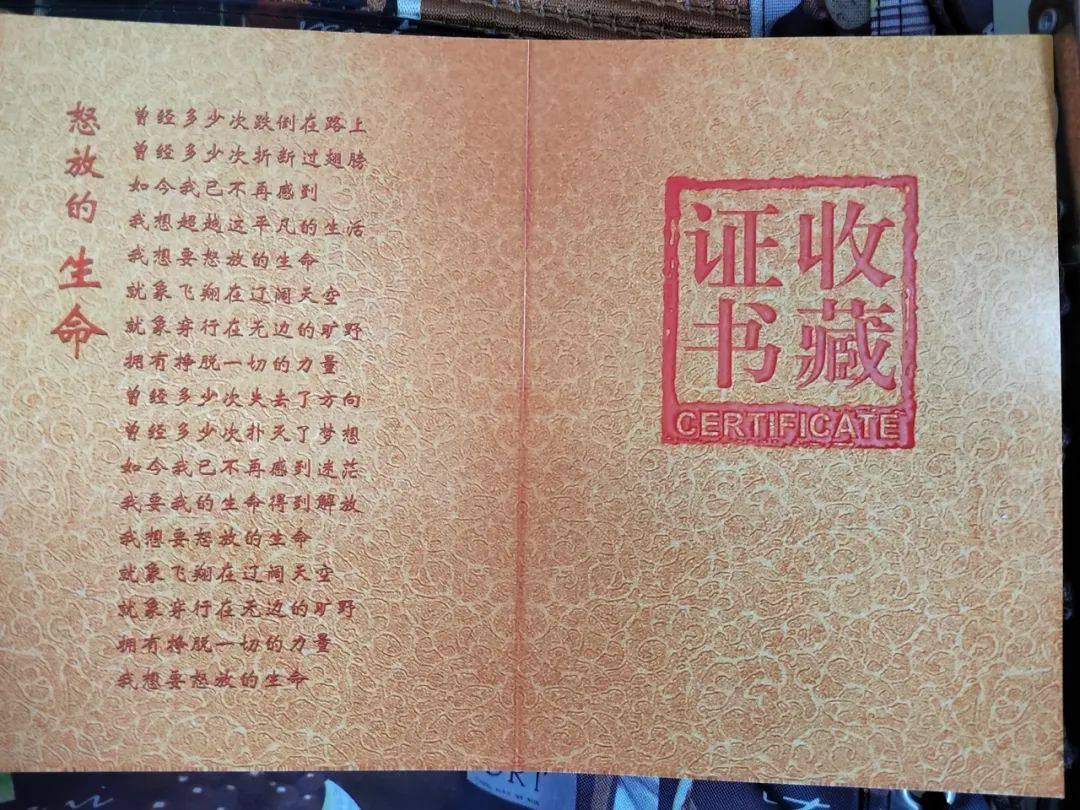 怒放的生命
曾经多少次跌倒在路上
曾经多少次折断过翅膀
如今我已不再感到
我想超越这平凡的生活
我想要怒放的生命
就象飞翔在辽阔天空
就象穿行在无边的旷野
拥有挣脱一切的力量
曾经多少次失去了方向
曾经多少次扑灭了梦想
如今我已不再感到迷茫
我要我的生命得到解放
我想要怒放的生命
就象飞翔在辽阔天空
就象穿行在无边的旷野
拥有挣脱一切的力量
我想要怒放的生命
收藏
证书
CERTIFICATE